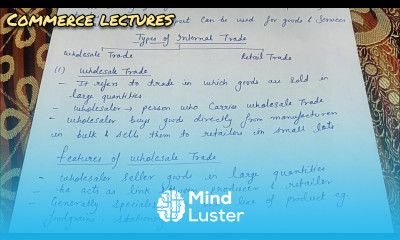 COMMERCE LECTURES
can be used for goods & services
Types of Internal Trade
Wholesale Trade Retail Trade
(1) Wholesale Trade
- It refers to trade in which goods are sold in
large quantities
- wholesaler → person who carries wholesale trade
- wholesaler buys goods directly from manufacturers
in bulk & sells them to retailers in small lots
features of wholesale Trade
- wholesaler seller goods in large quantities
- He acts as link between producer & retailor
- Generally line of product eg.
Mind
Luster